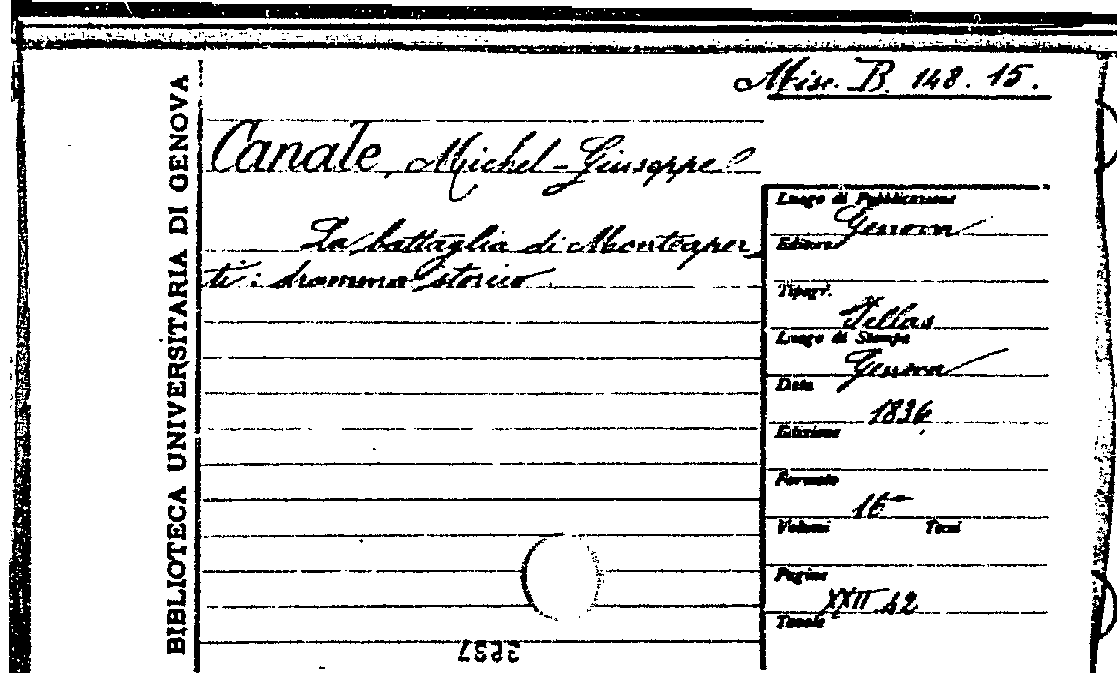 Misc. B. 148. 15.
BIBLIOTECA UNIVERSITARIA DI GENOVA
Canale, Michel-Giuseppe
La battaglia di Montaper
ti: dramma storico.
Luogo di Pubblicazione
Genova
Editore
Tipogr.
Pellas
Luogo di Stampa
Genova
Data
1836
Edizione
Formato
16°
Volumi Tomi
Pagine
XXII 62
Tavole